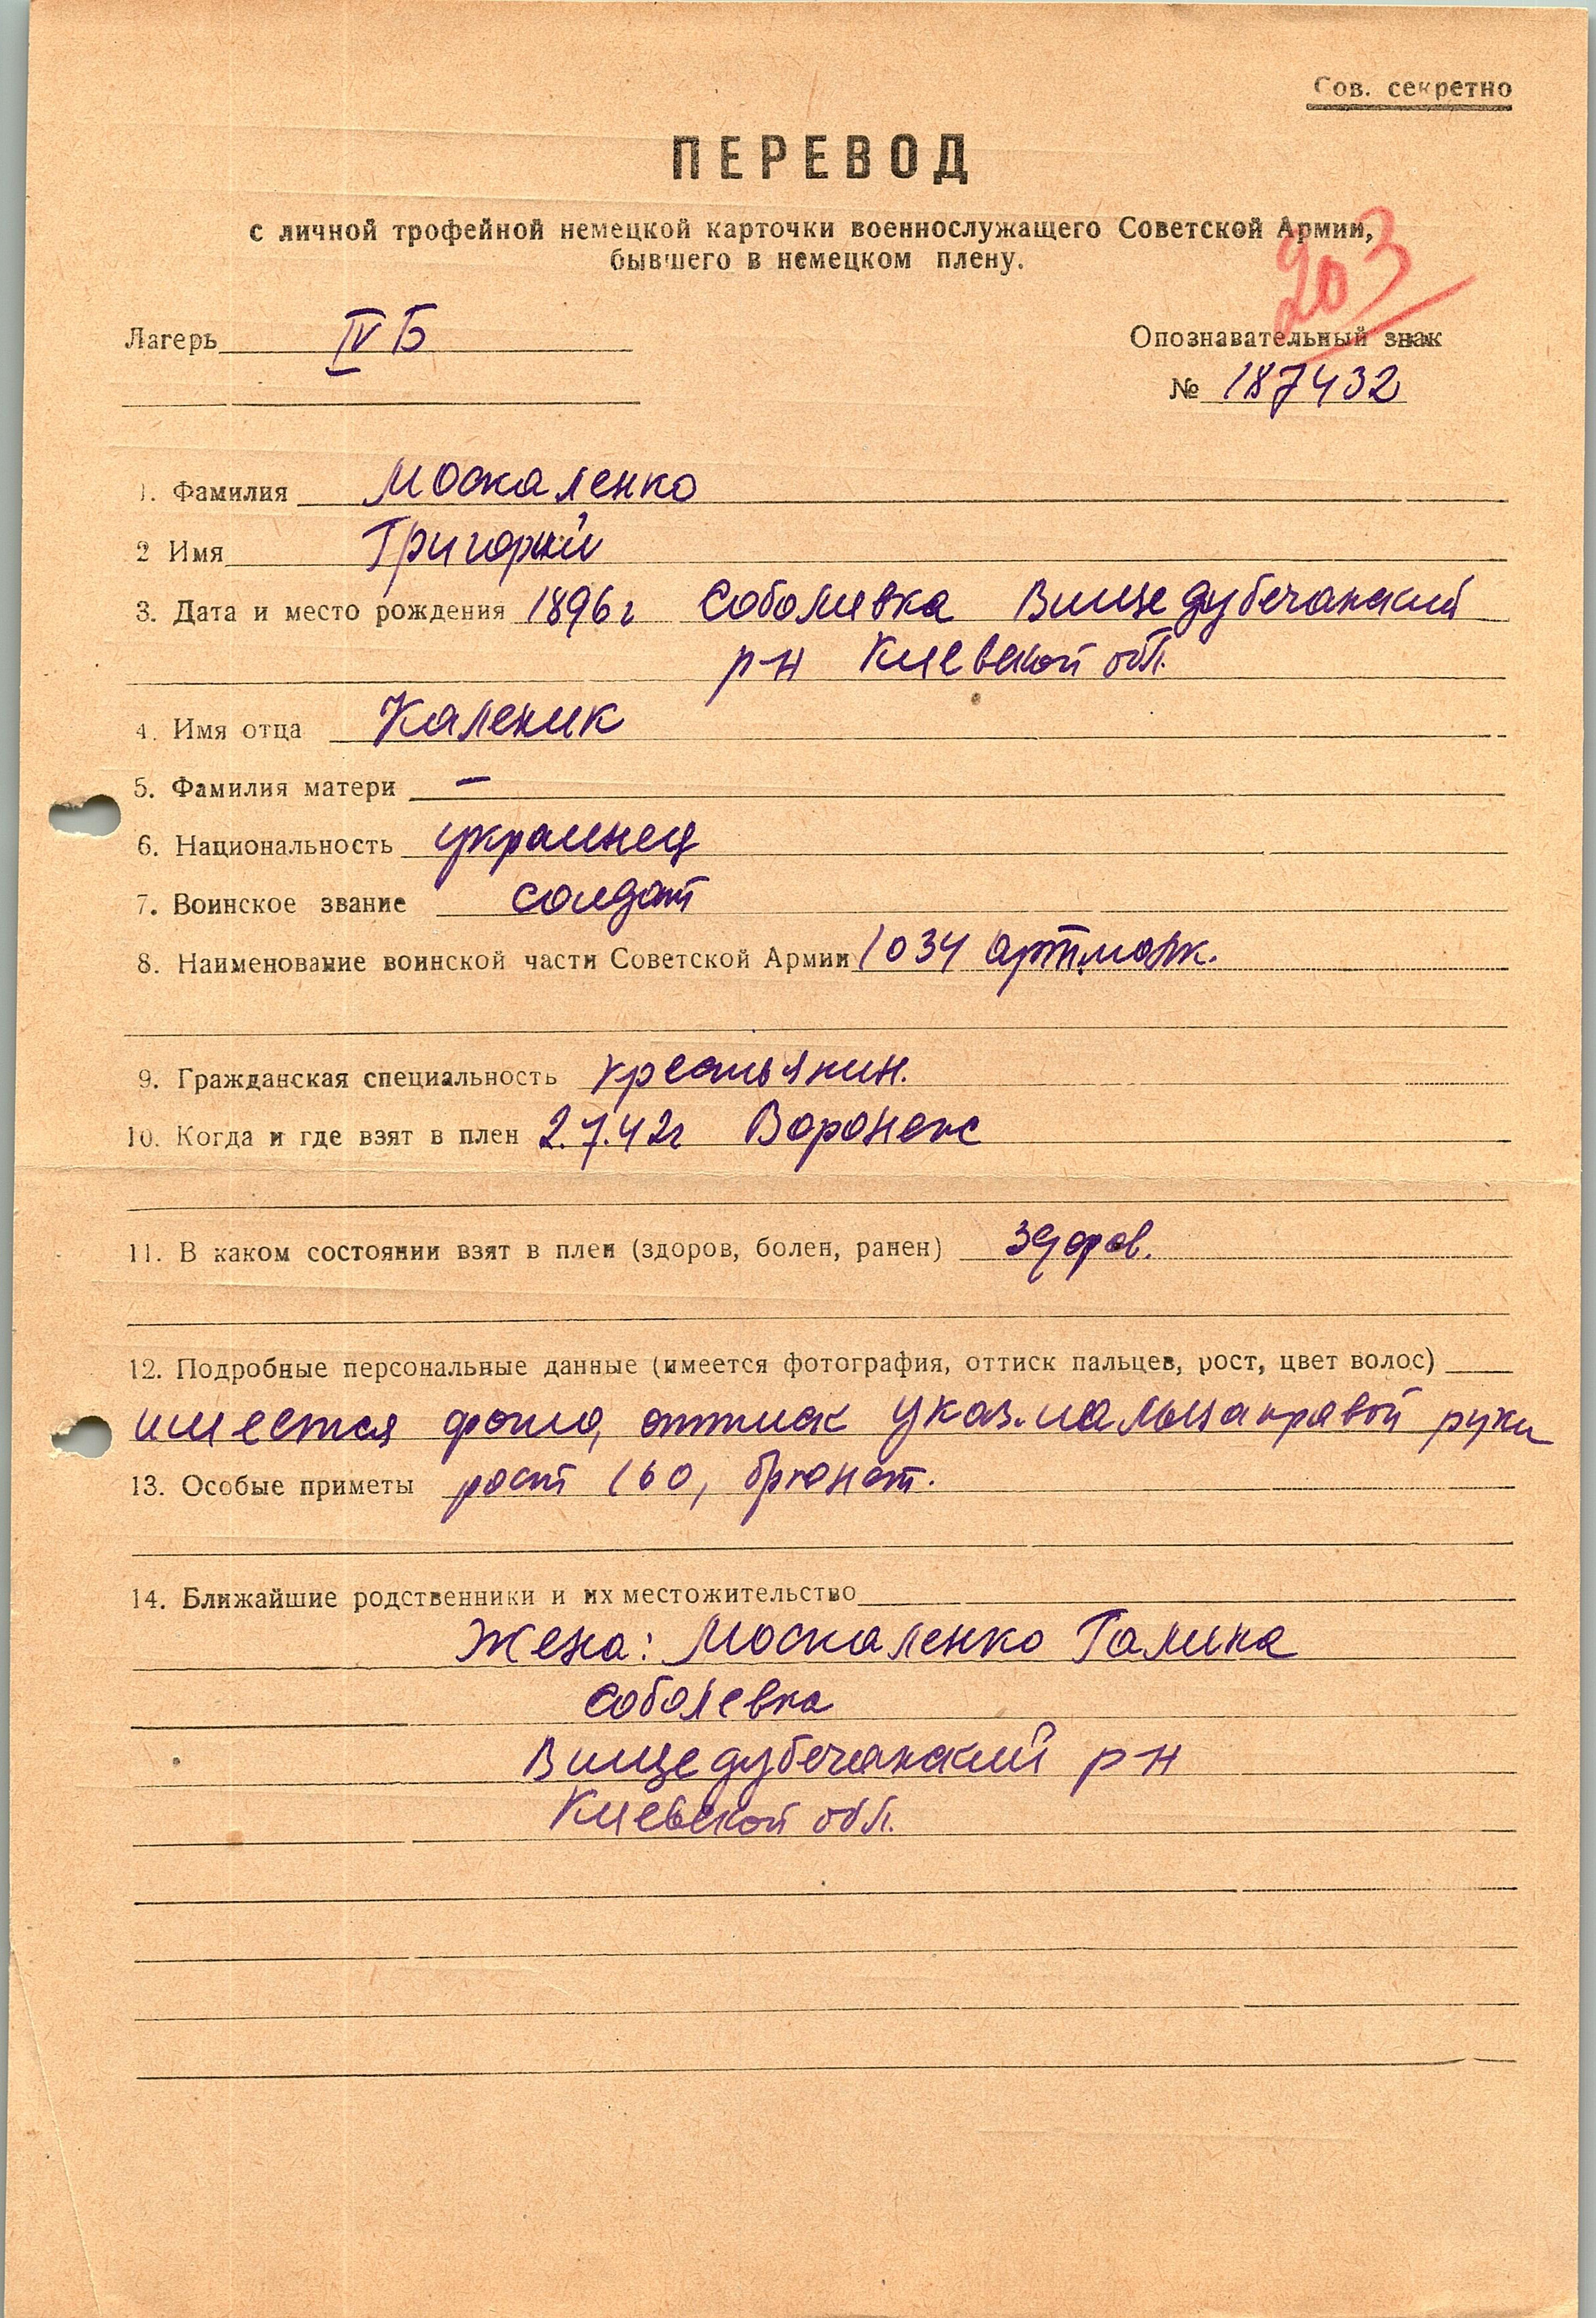 Сов. секретно
ПЕРЕВОД
с личной трофейной немецкой карточки военнослужащего Советской Армии,
бывшего в немецком плену.
203
Лагерь IV Б
Опознавательный знак
№ 187432
1. Фамилия Москаленко
2 Имя Григорий
3. Дата и место рождения 1896 г Соболивка Вищедубечанский
р-н Киевской обл.
4. Имя отца Каленик
5. Фамилия матери –
6. Национальность украинец
7. Воинское звание солдат
8. Наименование воинской части Советской Армии 1034
9. Гражданская специальность крестьянин.
10. Когда и где взят в плен 2.7.42г Воронеж
11. В каком состоянии взят в плен (здоров, болен, ранен) здоров.
12. Подробные персональные данные (имеется фотография, оттиск пальцев, рост, цвет волос)
имеется фото, оттиск указ. пальца правой руки
13. Особые приметы рост 160, брюнет.
14. Ближайшие родственники и их местожительство
Жена: Москаленко Галина
Соболевка
Вищедубечанский р-н
Киевской обл.